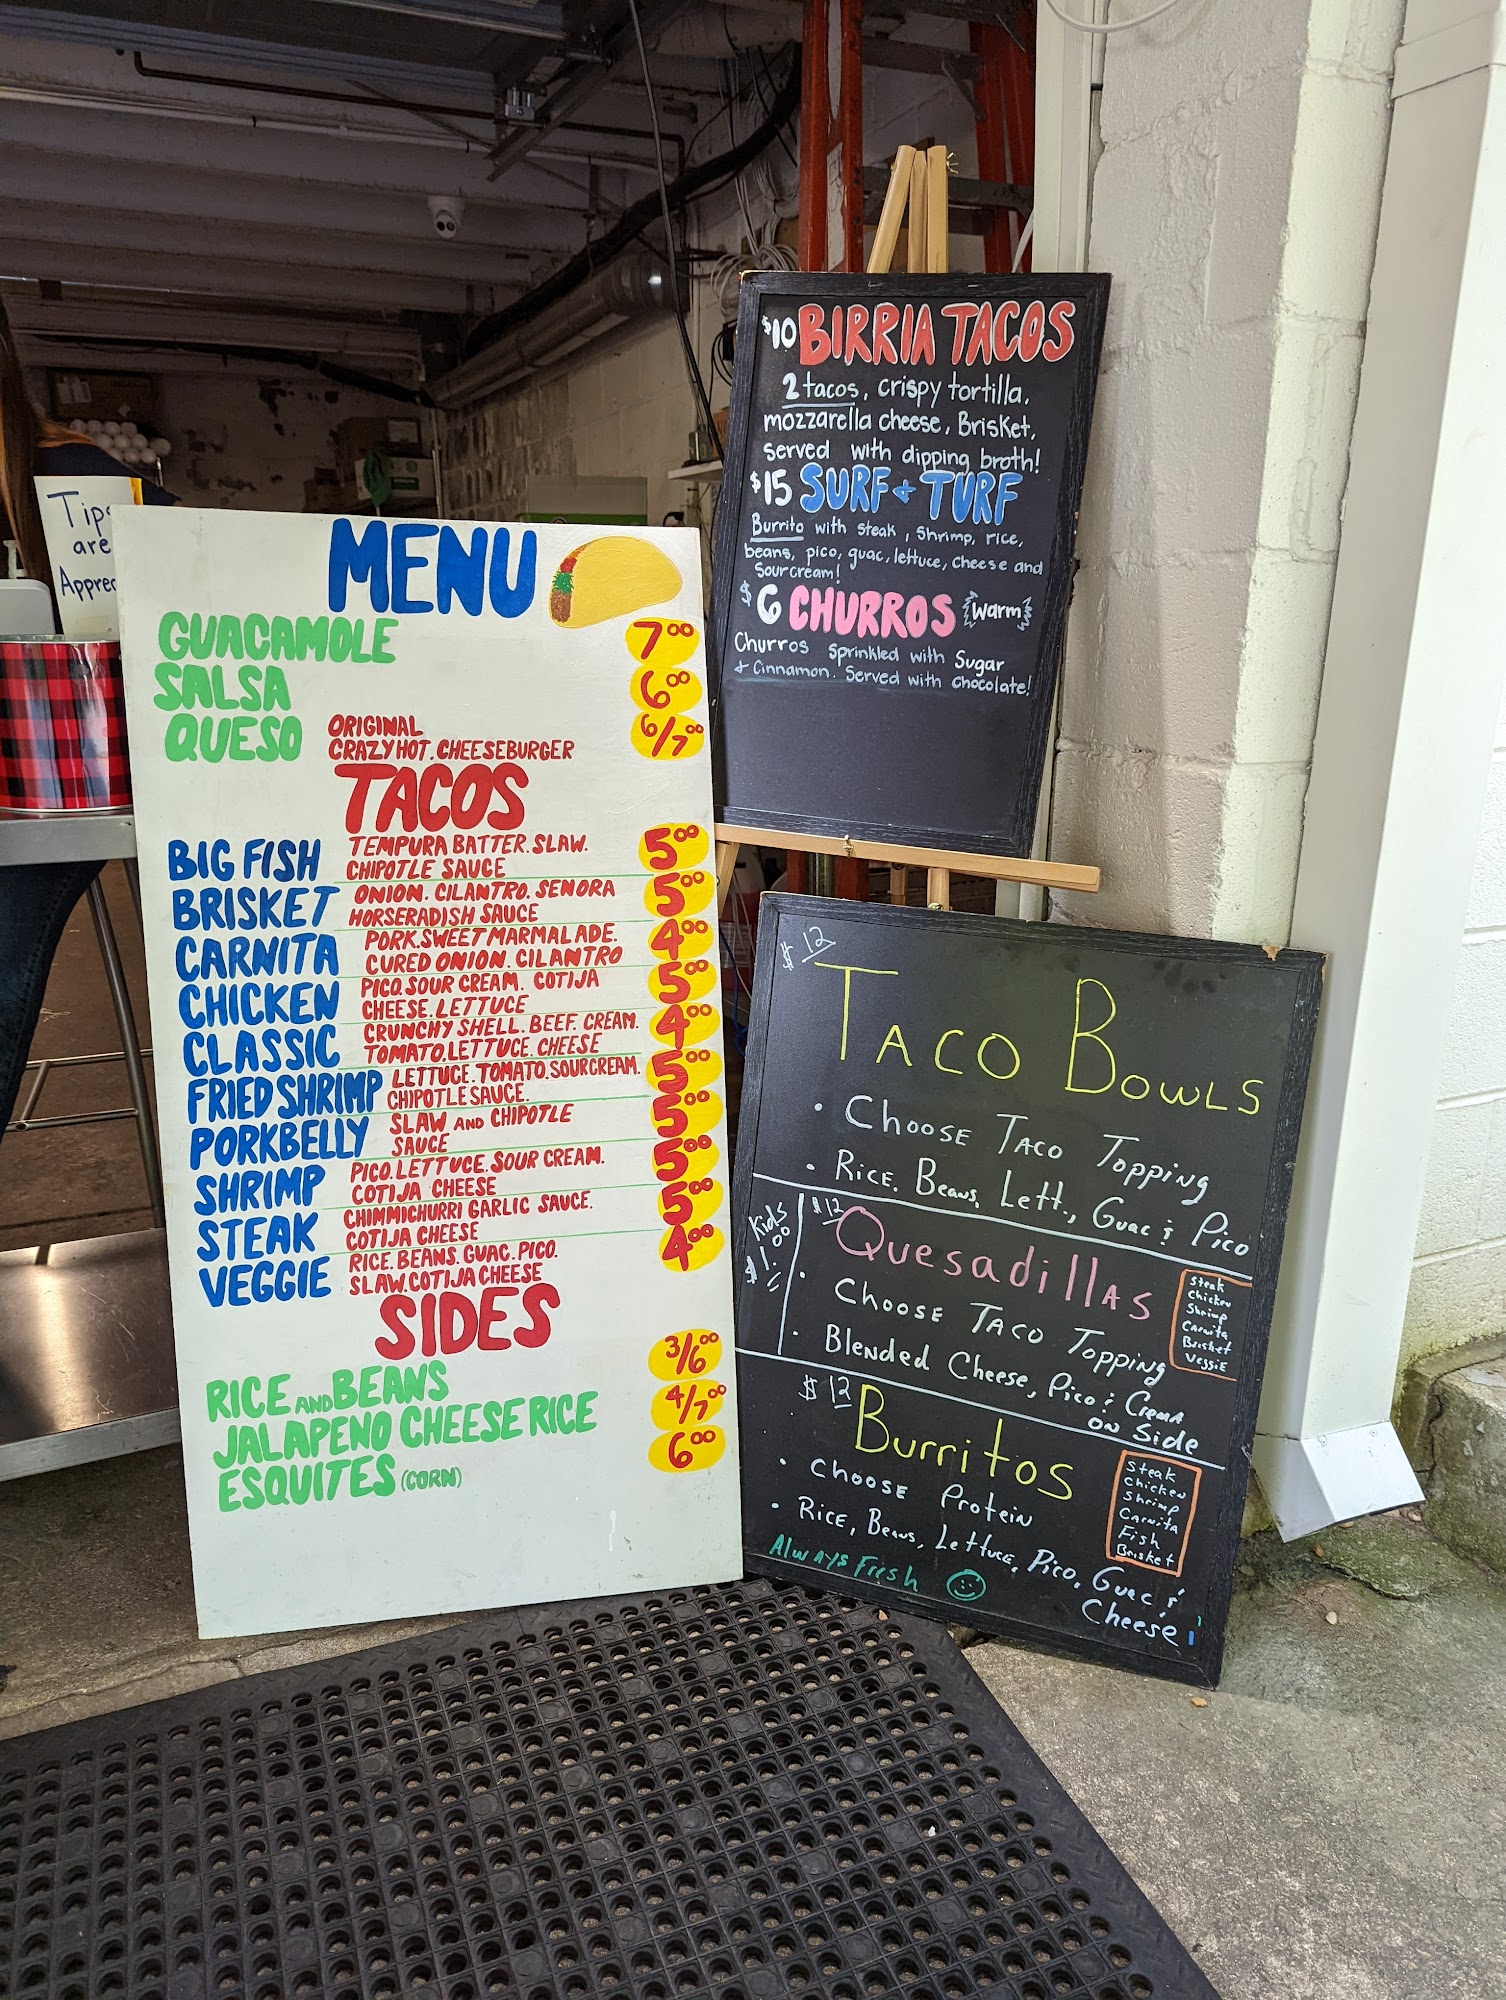 Tips
are
MENU
GUACAMOLE 7.00
SALSA 6.00
QUESO ORIGINAL 6/7.00
CRAZY HOT. CHEESEBURGER
TACOS
BIG FISH TEMPURA BATTER. SLAW. 5.00
CHIPOTLE SAUCE
BRISKET ONION. CILANTRO. SENORA 5.00
HORSERADISH SAUCE
CARNITA PORK. SWEET MARMALADE. 4.00
CURED ONION. CILANTRO
CHICKEN PICO. SOUR CREAM. COTIJA 5.00
CHEESE. LETTUCE
CLASSIC CRUNCHY SHELL. BEEF. CREAM. 4.00
TOMATO. LETTUCE. CHEESE
FRIED SHRIMP LETTUCE. TOMATO. SOUR CREAM. 5.00
CHIPOTLE SAUCE.
PORKBELLY SLAW AND CHIPOTLE 5.00
SAUCE
SHRIMP PICO. LETTUCE. SOUR CREAM. 5.00
COTIJA CHEESE
STEAK CHIMMICHURRI GARLIC SAUCE. 5.00
COTIJA CHEESE
VEGGIE RICE. BEANS. GUAC. PICO. 4.00
SLAW. COTIJA CHEESE
SIDES
RICE AND BEANS 3/6.00
JALAPENO CHEESE RICE 4/7.00
ESQUITES (CORN) 6.00
$10 BIRRIA TACOS
2 tacos, crispy tortilla,
mozzarella cheese, Brisket,
served with dipping broth!
$15 SURF + TURF
Burrito with steak, shrimp, rice,
beans, pico, guac, lettuce, cheese and
sour cream!
$6 CHURROS warm
Churros sprinkled with Sugar
+ Cinnamon. Served with chocolate!
$12
TACO BOWLS
• CHOOSE TACO TOPPING
• RICE, Beans, Lett., Guac & Pico
Kids
$12 QuesadillAS
• CHOOSE TACO TOPPING
• Blended Cheese, Pico & CremA
ON Side
Steak
Chicken
Shrimp
Carnita
Brisket
VEGGIE
$12 Burritos
• CHOOSE Protein
• RICE, Beans, Lettuce, Pico, Guac &
Cheese!
Steak
Chicken
Shrimp
Carnita
Fish
Brisket
Always Fresh